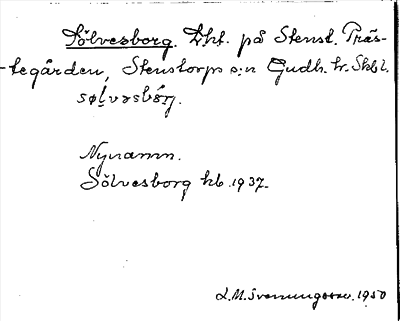 Sölvesborg. Lht. på Stenst. Präs-
tegården, Stenstorps s:n Gudh. hr. Skbl.
Nynamn.
Sölvesborg hb. 1937.
L.M. Svenungsson. 1950